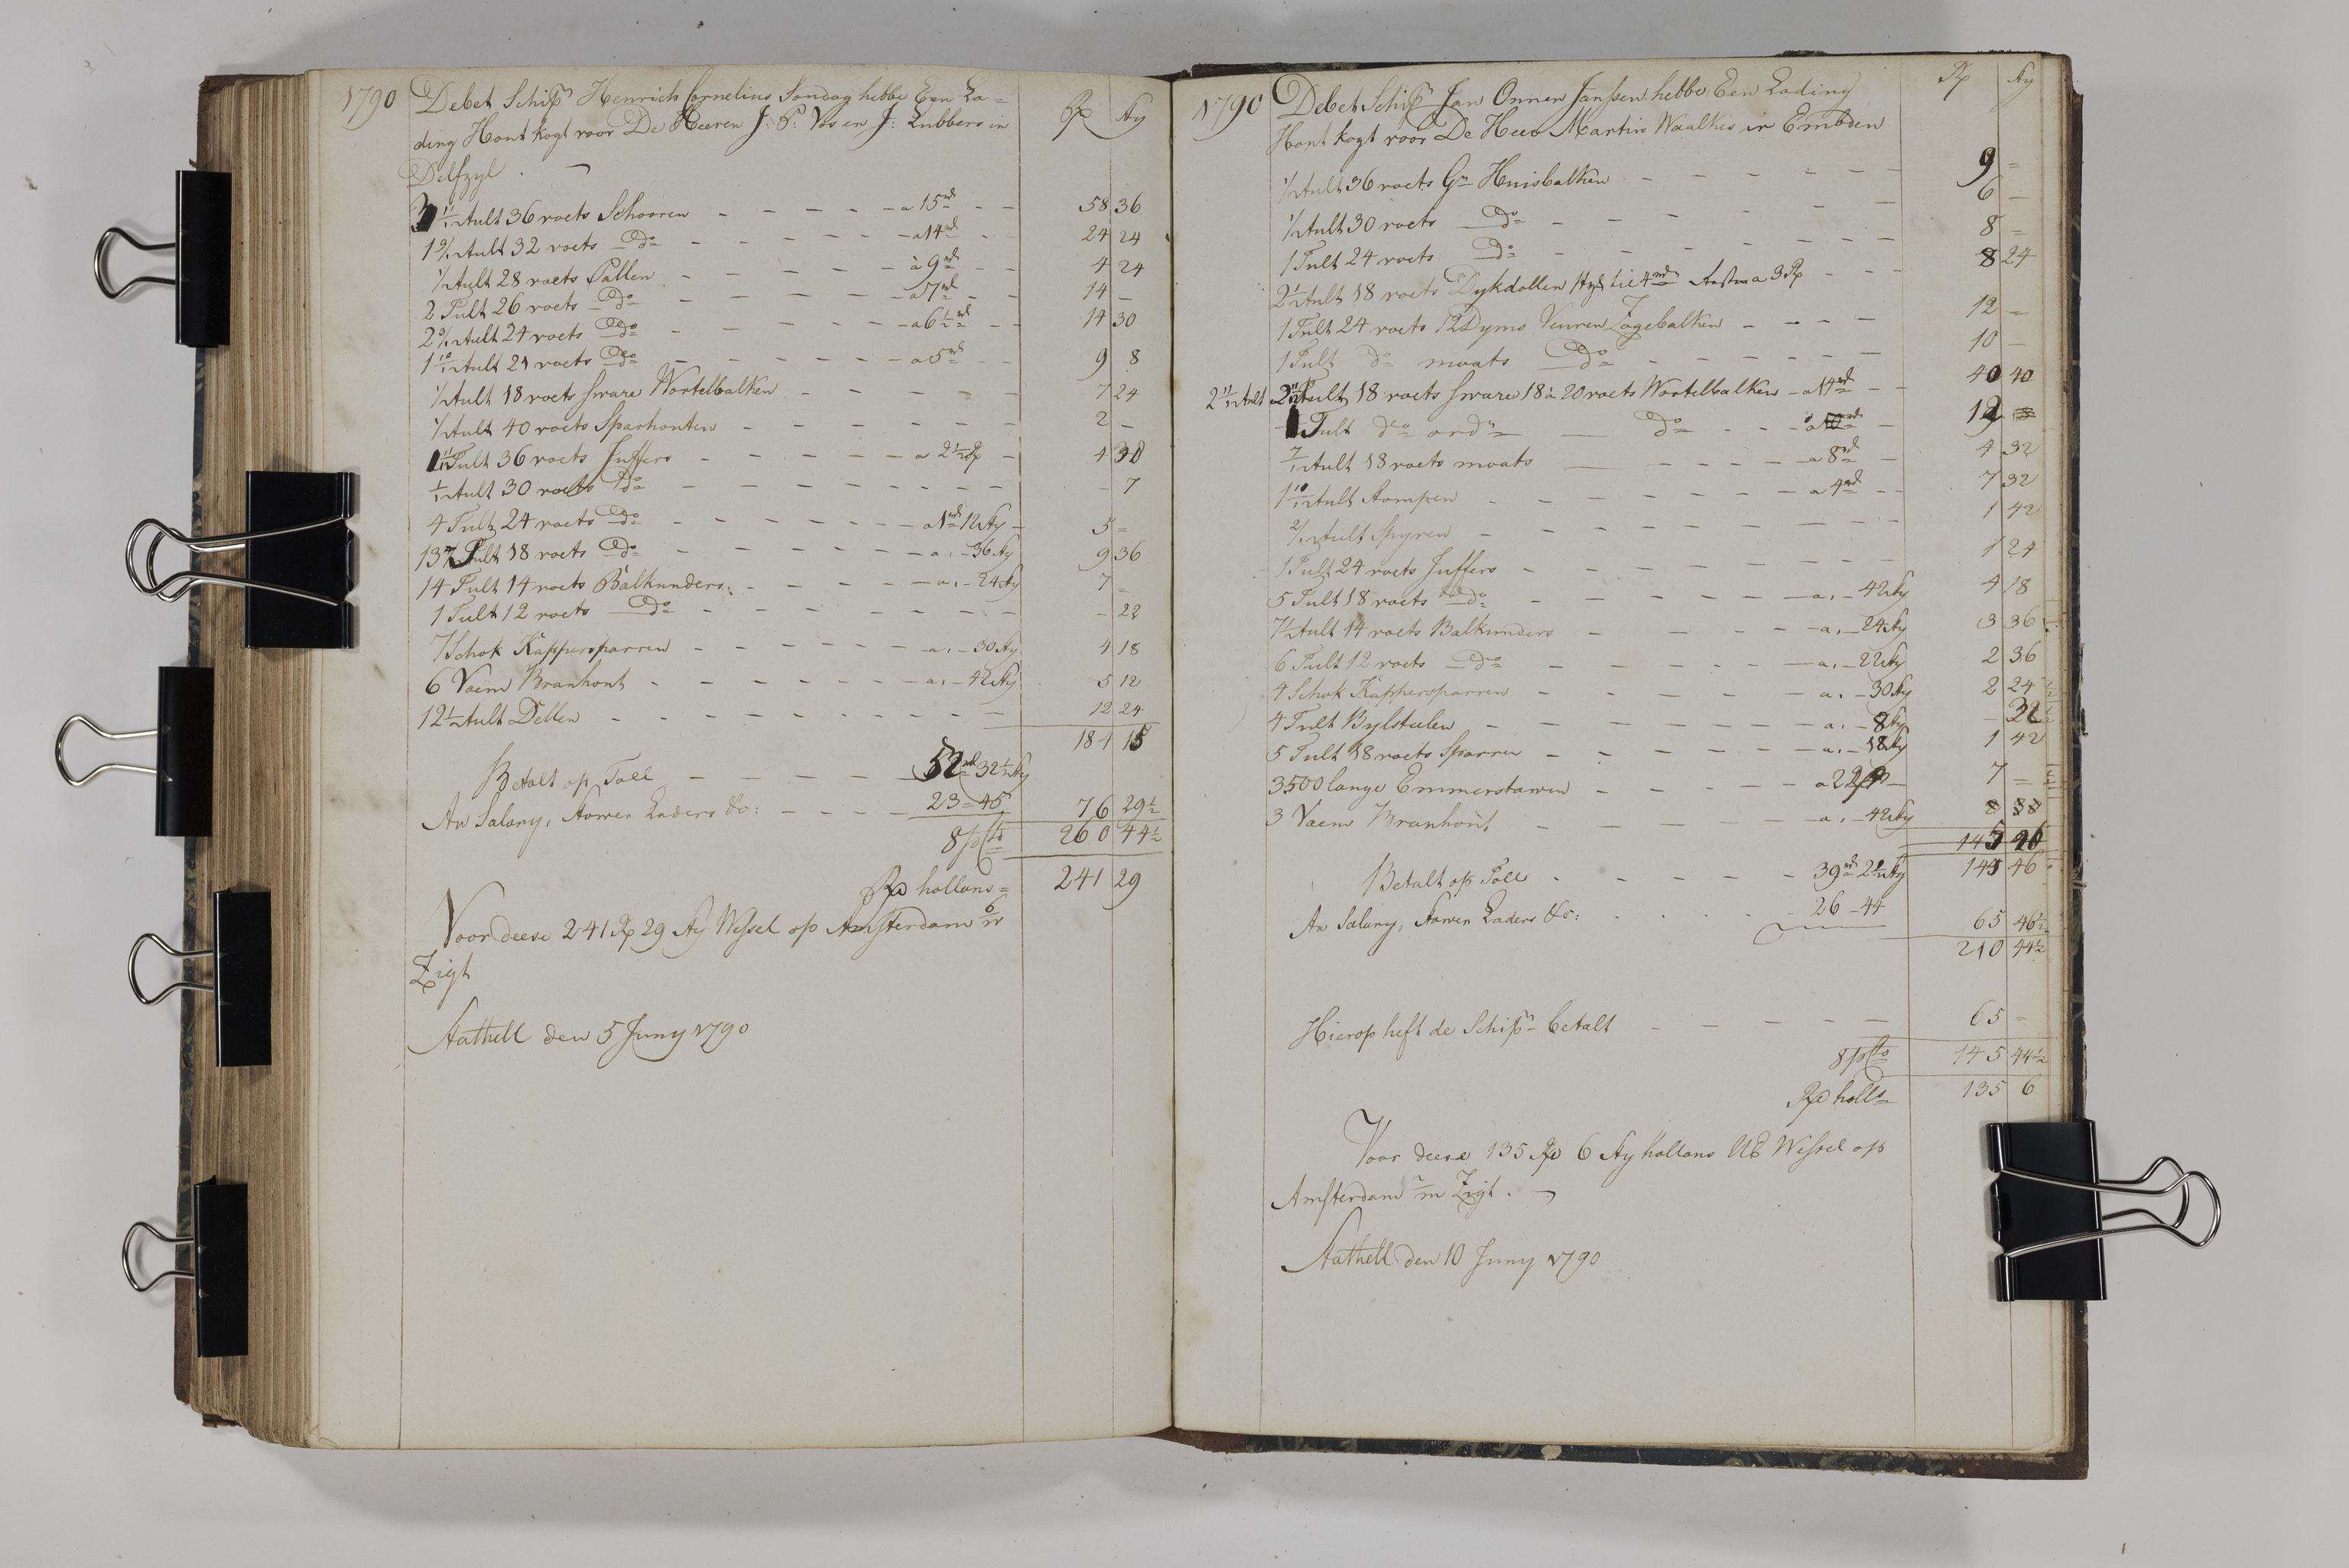 1790 Debet Schipr Henrich Cornelius Sondag hebbe Een La=
ding Hout kogt voor De Heeren J: P: Vos en J: Lubbers in
Delfzyl.
Rd Sty
3 11/12 Tult 36 voets Schooren a 15 rd 58 36
1 9/12 Tult 32 voets Do a 14 rd 24 24
1/2 Tult 28 voets Pallen à 9 rd 4 24
2 Tult 26 voets Do a 7 rd 14 –
2 3/12 Tult 24 voets Do a 6 1/2 rd 14 30
1 10/12 Tult 21 voets Do a 5 rd 9 8
1/2 Tult 18 voets sware Wortelbalken 7 24
1/2 Tult 40 voets Sparhouten 2 –
1 11/12 Tult 36 voets Juffers a 2 1/2 Rd 4 38
1/12 Tult 30 voets Do – 7
4 Tult 24 voets Do a 1 rd 12 Sty 5 =
13 Tult 18 voets Do a „ – 36 Sty 9 36
14 Tult 14 voets Balkunders a „ – 24 Sty 7 =
1 Tult 12 voets Do – 22
7 Schok Kappersparren a „ – 30 Sty 4 18
6 Vaem Branhout a „ – 42 Sty 5 12
12 1/2 Tult Dellen 12 24
184 15
Betalt op Toll 52 rd 32 1/2 Sty
An Salary, Stower Laders &c: 23 = 45 76 29 1/2
8 p Cto 260 44 1/2
Rd hollans = 241 29
Voor deese 241 Rd 29 Sty Wessel op Amsterdam 6/w
Zigt
Stathell den 5 Juny 1790
1790 Debet Schipr Jan Onnen Janssen hebbe Een Lading
Hout kogt voor De Heer Martin Waalkes in Embden
Rd Sty
1/2 Tult 36 voets Gr Huisbalken 9 =
1/2 Tult 30 voets Do 6 –
1 Tult 24 voets Do 8 =
2 1/2 Tult 18 voets Dykdollen a 3 Rd 8 24
1 Tult 24 voets 12 Dyms Vuuren Zagebalken 12 –
1 Tult do moats Do 10 –
2 11/12 Tult 2 11/12 Tult 18 voets sware 18 à 20 voets Wortelbalken a 14 rd 40 40
1 Tult do ordn Do 12
7/12 Tult 18 voets moats a 8 rd 4 32
1 10/12 Tult Stompen a 4 rd 7 32
2/12 Tult Spyren 1 42
1 Tult 24 voets Juffers 1 24
5 Tult 18 voets Do a „ – 42 Sty 4 18
7 1/2 Tult 14 voets Balkunders a „ – 24 Sty 3 36
6 Tult 12 voets Do a „ – 22 Sty 2 36
4 Schok Kappersparren a „ – 30 Sty 2 24
4 Tult Bylsteelen a „ – 8 Sty – 32
5 Tult 18 voets Sparren a „ – 18 Sty 1 42
3500 lange Emmerstaven a 2 Rd 7 =
3 Vaem Branhout a „ – 42 Sty
145 46
Betalt op Toll 39 rd 2 1/2 Sty
An Salary, Stower Laders &c: 26 – 44 65 46 1/2
210 44 1/2
Hierop heft de Schipr betalt 65 =
8 p Cto 145 44 1/2
Rd holls 135 6
Voor deese 135 Rd 6 Sty hollans UE Wessel op
Amsterdam Zigt.
Stathell den 10 Juny 1790